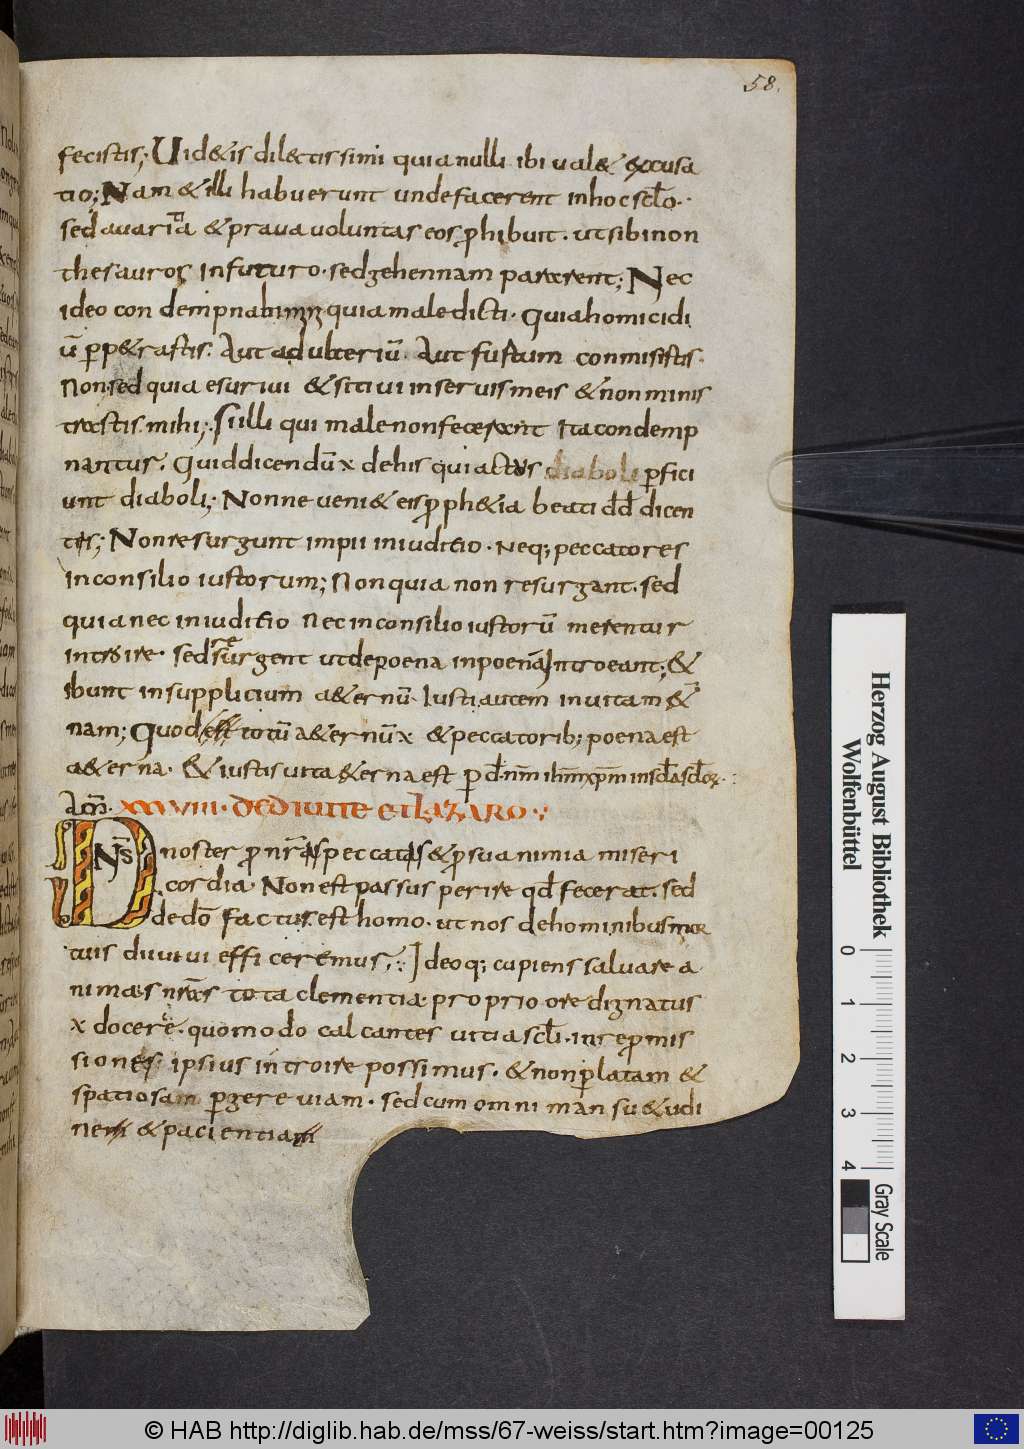 58.
fecistis; Uid&is dil&tissimi quia nulli ibi ual& excusa
tio; Nam & illi habuerunt unde facerent in hoc scło.
sed auaritia & praua uoluntas eos ꝓhibuit. ut sibi non
thesauros in futuro. sed gehennam pararent; Nec
ideo con dempnabimꝛ quia maledicti. Quia homicidi
ū ꝑp&rastis. Aut adulteriū. Aut furtum conmisistis.
Non sed quia esuriui & sitiui in seruis meis & non minis
trastis mihi; Si illi qui male non fecerunt Ita condemp
nantur. Quid dicendū x de his qui actus diaboli ꝑfici
unt diaboli; Nonne ueni& eis ꝓph&ia beati dd̄ dicen
tis; Non resurgunt impii in iuditio. Neq; peccatores
in consilio iustorum; Non quia non resurgant. sed
quia nec in iuditio nec in consilio iustorū merentur
introire. sed resurgent ut de poena in poenā Introeant; &
ibunt in supplicium a&ernū. Iusti autem in uitam &̄
nam; Quod totū a&ernū x & peccatorib; poena est
a&erna. & iustis uita &erna est ꝑ dn̄m nr̄m ihm̄ xp̄m in scła scłoꝝ.
XXXVIII. DE DIUITE ET LAZARO
DNS̄ noster ꝓ nr̄is peccatis & ꝓ sua nimia miseri
cordia. Non est passus perire qd̄ fecerat. sed
de dō factus est homo. ut nos de hominibus mor
tuis diui ui effi ceremus. Ideoq; cupiens saluare a
nimas nr̄as tota clementia proprio ore dignatus
x docere. quomodo calcantes uitia scłi. in repromis
siones ipsius introire possimus. & non ꝑ latam &
spatiosam ꝑgere uiam. sed cum omni mansu&udi
nem & pacientiam
Herzog August Bibliothek
Wolfenbüttel
0 1 2 3 4
Gray Scale
© HAB http://diglib.hab.de/mss/67-weiss/start.htm?image=00125